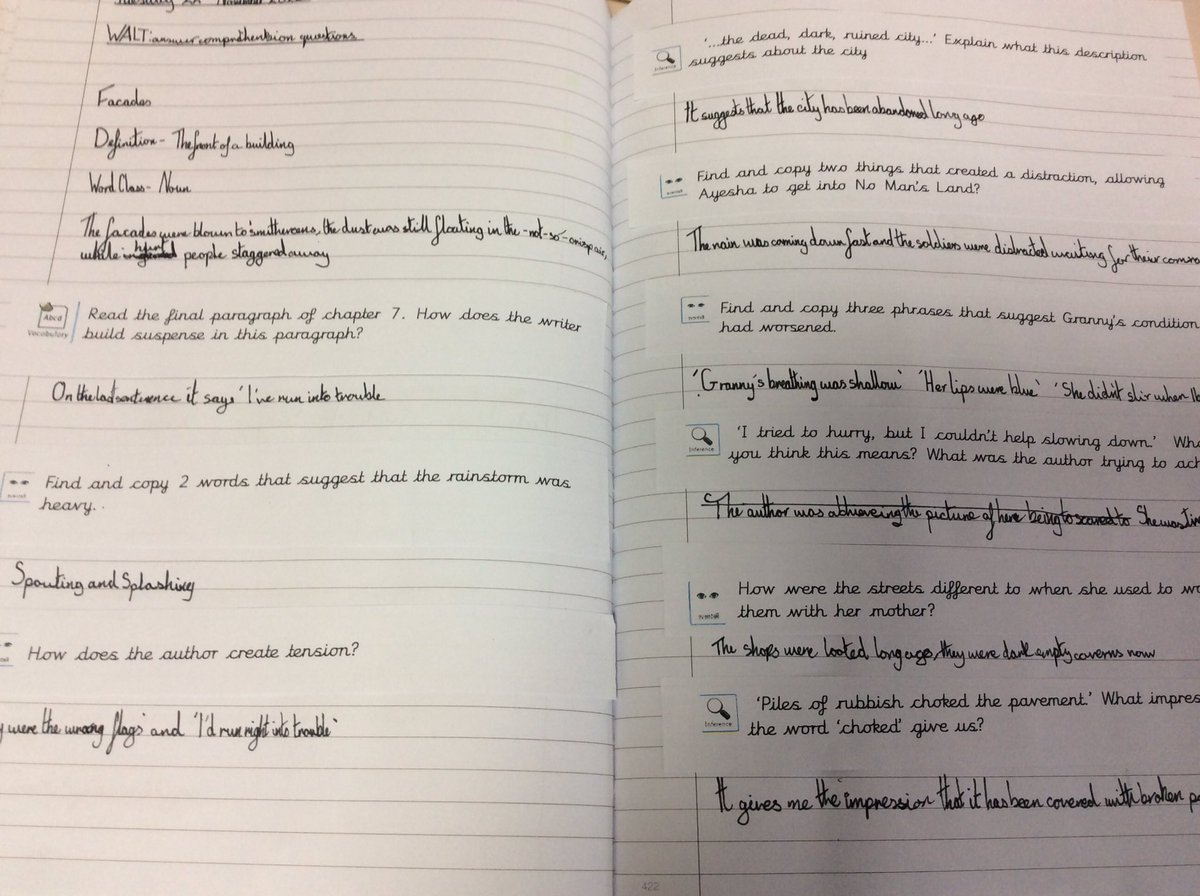 WALT: answer comprehension questions
Facades
Definition - The front of a building
Word Class - Noun
The facades were blown to smithereens, the dust was still floating in the -not-so-crisp air,
hurt
while people staggered away
Abcd
Vocabulary
Read the final paragraph of chapter 7. How does the writer
build suspense in this paragraph?
On the last sentence it says 'I've run into trouble
Find and copy 2 words that suggest that the rainstorm was
heavy.
Spouting and Splashing
How does the author create tension?
were the wrong flags' and 'I'd run right into trouble'
'...the dead, dark, ruined city...' Explain what this description
Inference
suggests about the city
It suggests that the city has been abandoned long ago
Find and copy two things that created a distraction, allowing
Ayesha to get into No Man's Land?
The rain was coming down fast and the soldiers were distracted waiting for their
Find and copy three phrases that suggest Granny's condition
had worsened.
'Granny's breathing was shallow' 'Her lips were blue' 'She didn't stir when
'I tried to hurry, but I couldn't help slowing down.'
Inference
you think this means? What was the author trying to
The author was the picture of here being to scared to She was
How were the streets different to when she used to
them with her mother?
The shops were looted long ago, they were dark empty caverns now
'Piles of rubbish choked the pavement.' What
Inference
the word 'choked' give us?
It gives me the impression that it has been covered with broken
422